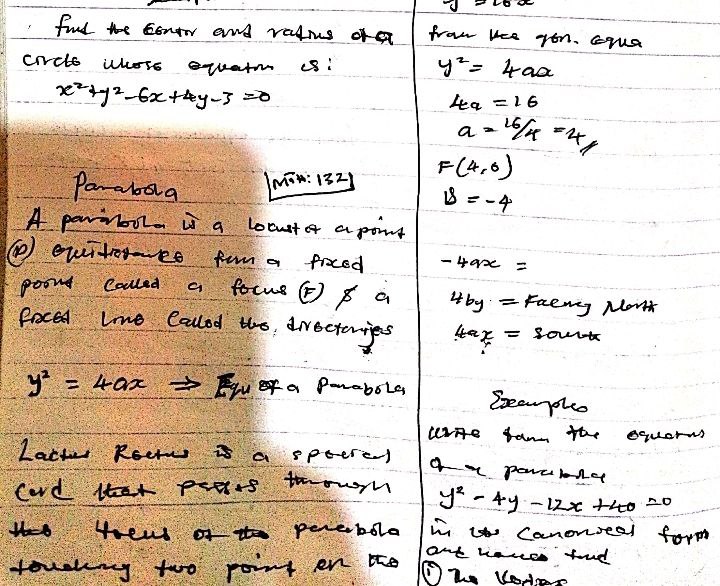 find the Centor and radius of a
circle whose equation is:
x²+y²-6x+4y-3=0
Parabola
Mth: 132
A parabola is a locus of a point
(P) equidistance from a fixed
point called a focus (F) & a
fixed line called the directories
y² = 4ax ⇒ Equ of a Parabola
Lactus Rectus is a special
Cord that passes through
the focus of the parabola
touching two point on the
y² = 16x
from the gen. equa
y² = 4ax
4a = 16
a = 16/4 = 4
F(4,0)
D = -4
-4ax =
4by = Facing North
4ax = South
Examples
write down the equations
of a parabola
y² - 4y - 12x + 40 = 0
in its Canonical form
and hence find
(i) The Vertex